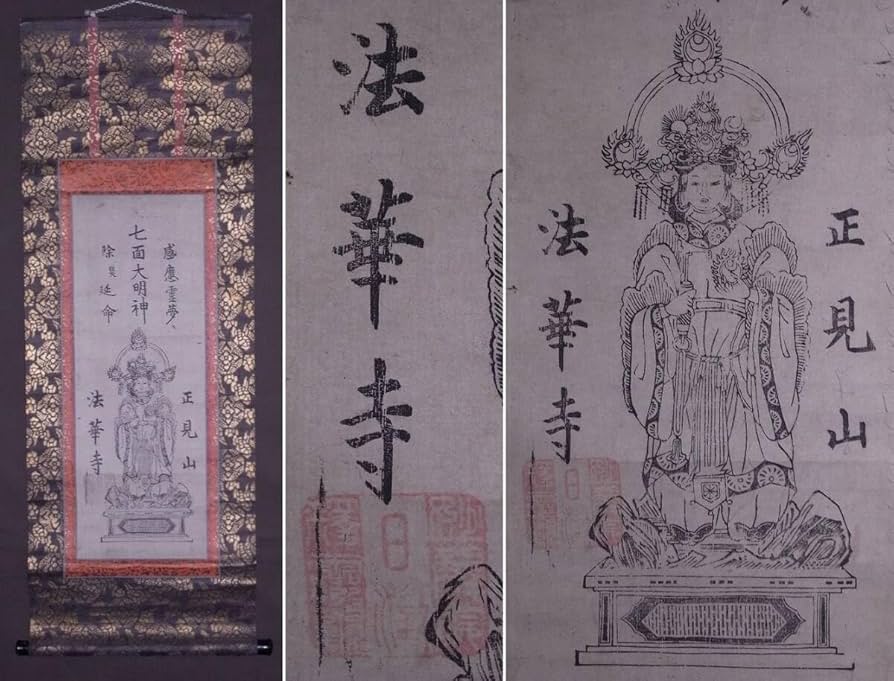 感應靈夢
七面大明神
除災延命
正見山
法華寺
法華寺
正見山
法華寺